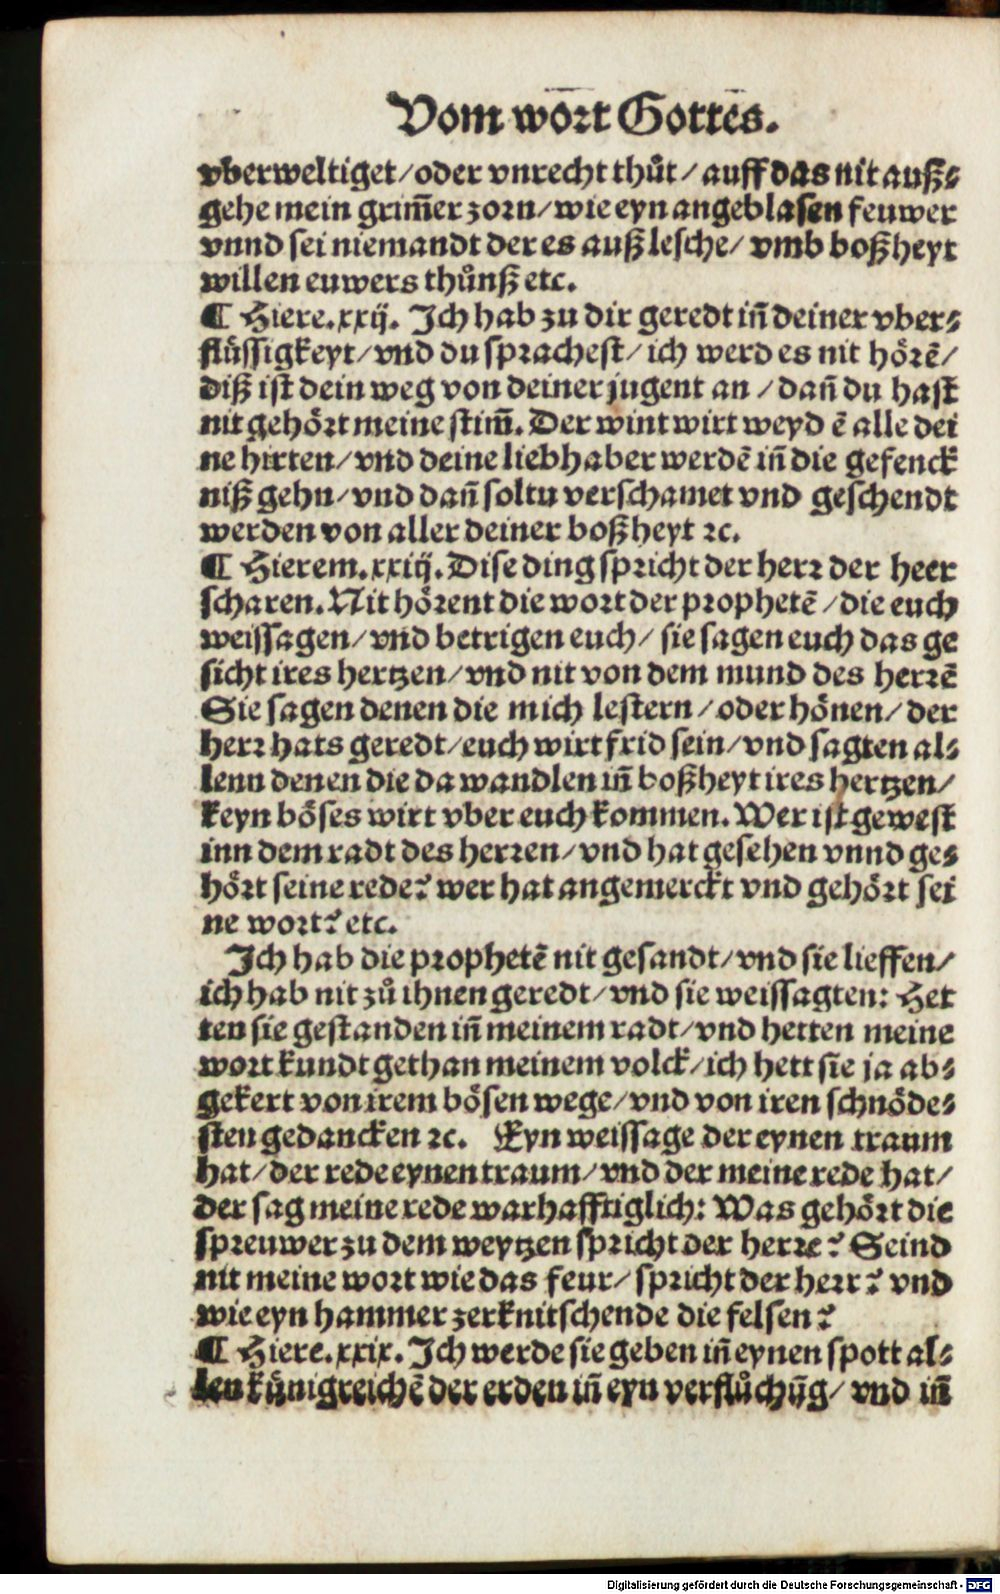 Vom wort Gottes.
vberweltiget/oder vnrecht thůt/auff das nit auß⸗
gehe mein grim̃er zorn/wie eyn angeblasen feuwer
vnnd sei niemandt der es außlesche/vmb boßheyt
willen euwers thůnß etc.
¶ Hiere.xxij. Ich hab zu dir geredt iñ deiner vber⸗
flüssigkeyt/vnd du sprachest/ich werd es nit hörẽ/
diß ist dein weg von deiner jugent an/dañ du hast
nit gehört meine stim̃. Der wint wirt weydẽ alle dei
ne hirten/vnd deine liebhaber werdẽ iñ die gefenck
niß gehn/vnd dañ soltu verschamet vnd geschendt
werden von aller deiner boßheyt ꝛc.
¶ Hierem.xxiij. Dise ding spricht der herr der heer
scharen. Nit hörent die wort der prophetẽ/die euch
weissagen/vnd betrigen euch/sie sagen euch das ge
sicht ires hertzen/vnd nit von dem mund des herrẽ
Sie sagen denen die mich lestern/oder hönen/der
herr hats geredt/euch wirt frid sein/vnd sagten al⸗
lenn denen die da wandlen iñ boßheyt ires hertzen/
keyn böses wirt vber euch kommen. Wer ist gewest
inn dem radt des herren/vnd hat gesehen vnnd ge⸗
hört seine rede? wer hat angemerckt vnd gehört sei
ne wort? etc.
Ich hab die prophetẽ nit gesandt/vnd sie lieffen/
ich hab nit zů ihnen geredt/vnd sie weissagten: Het
ten sie gestanden iñ meinem radt/vnd hetten meine
wort kundt gethan meinem volck/ich hett sie ja ab⸗
gekert von irem bösen wege/vnd von iren schnöde⸗
sten gedancken ꝛc. Eyn weissage der eynen traum
hat/der rede eynen traum/vnd der meine rede hat/
der sag meine rede warhafftiglich: Was gehört die
spreuwer zu dem weytzen spricht der herre? Seind
nit meine wort wie das feur/spricht der herr? vnd
wie eyn hammer zerknitschende die felsen?
¶ Hiere.xxix. Ich werde sie geben iñ eynen spott al⸗
len künigreichẽ der erden iñ eyn verflůchũg/vnd iñ
Digitalisierung gefördert durch die Deutsche Forschungsgemeinschaft - DFG